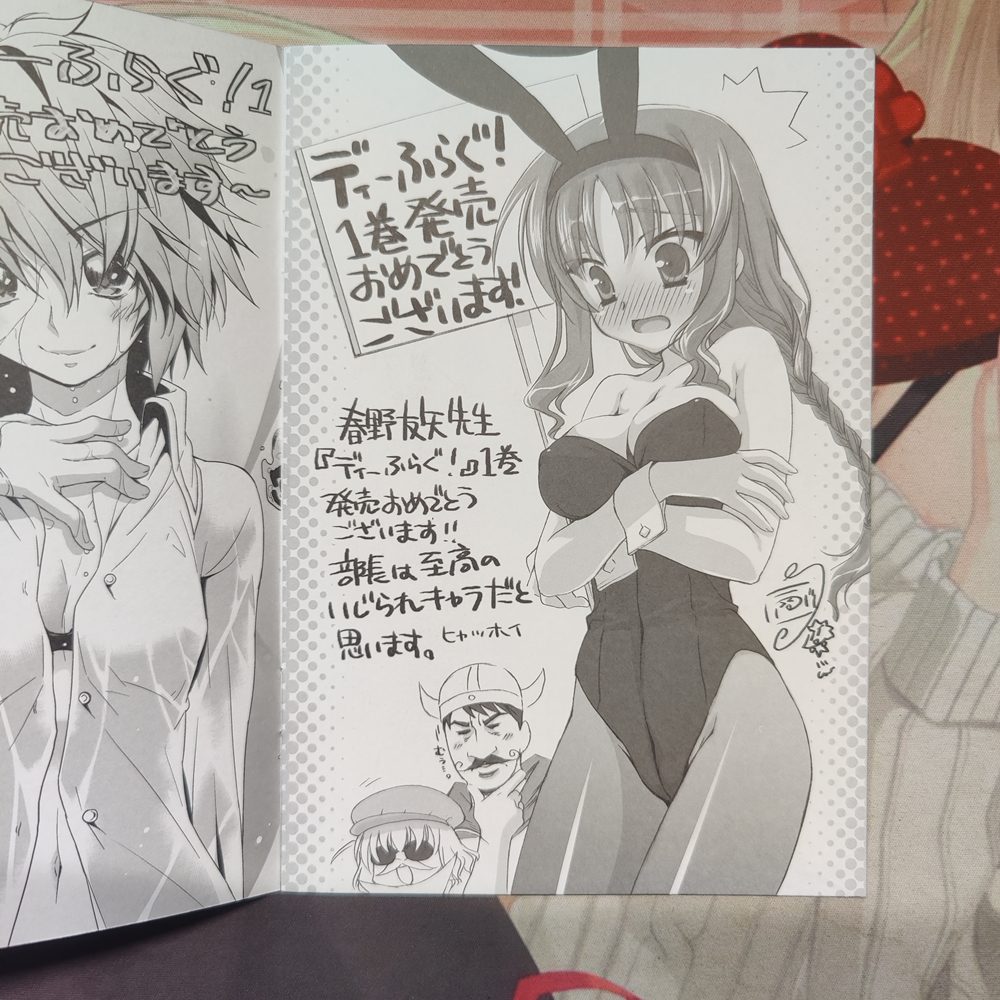 ーふらぐ!1
売おめでとう
ございます〜
ディーふらぐ!
1巻発売
おめでとう
ございます!
春野友矢先生
『ディーふらぐ!』1巻
発売おめでとう
ございます!!
部長は至高の
いじられキャラだと
思います。ヒャッホイ